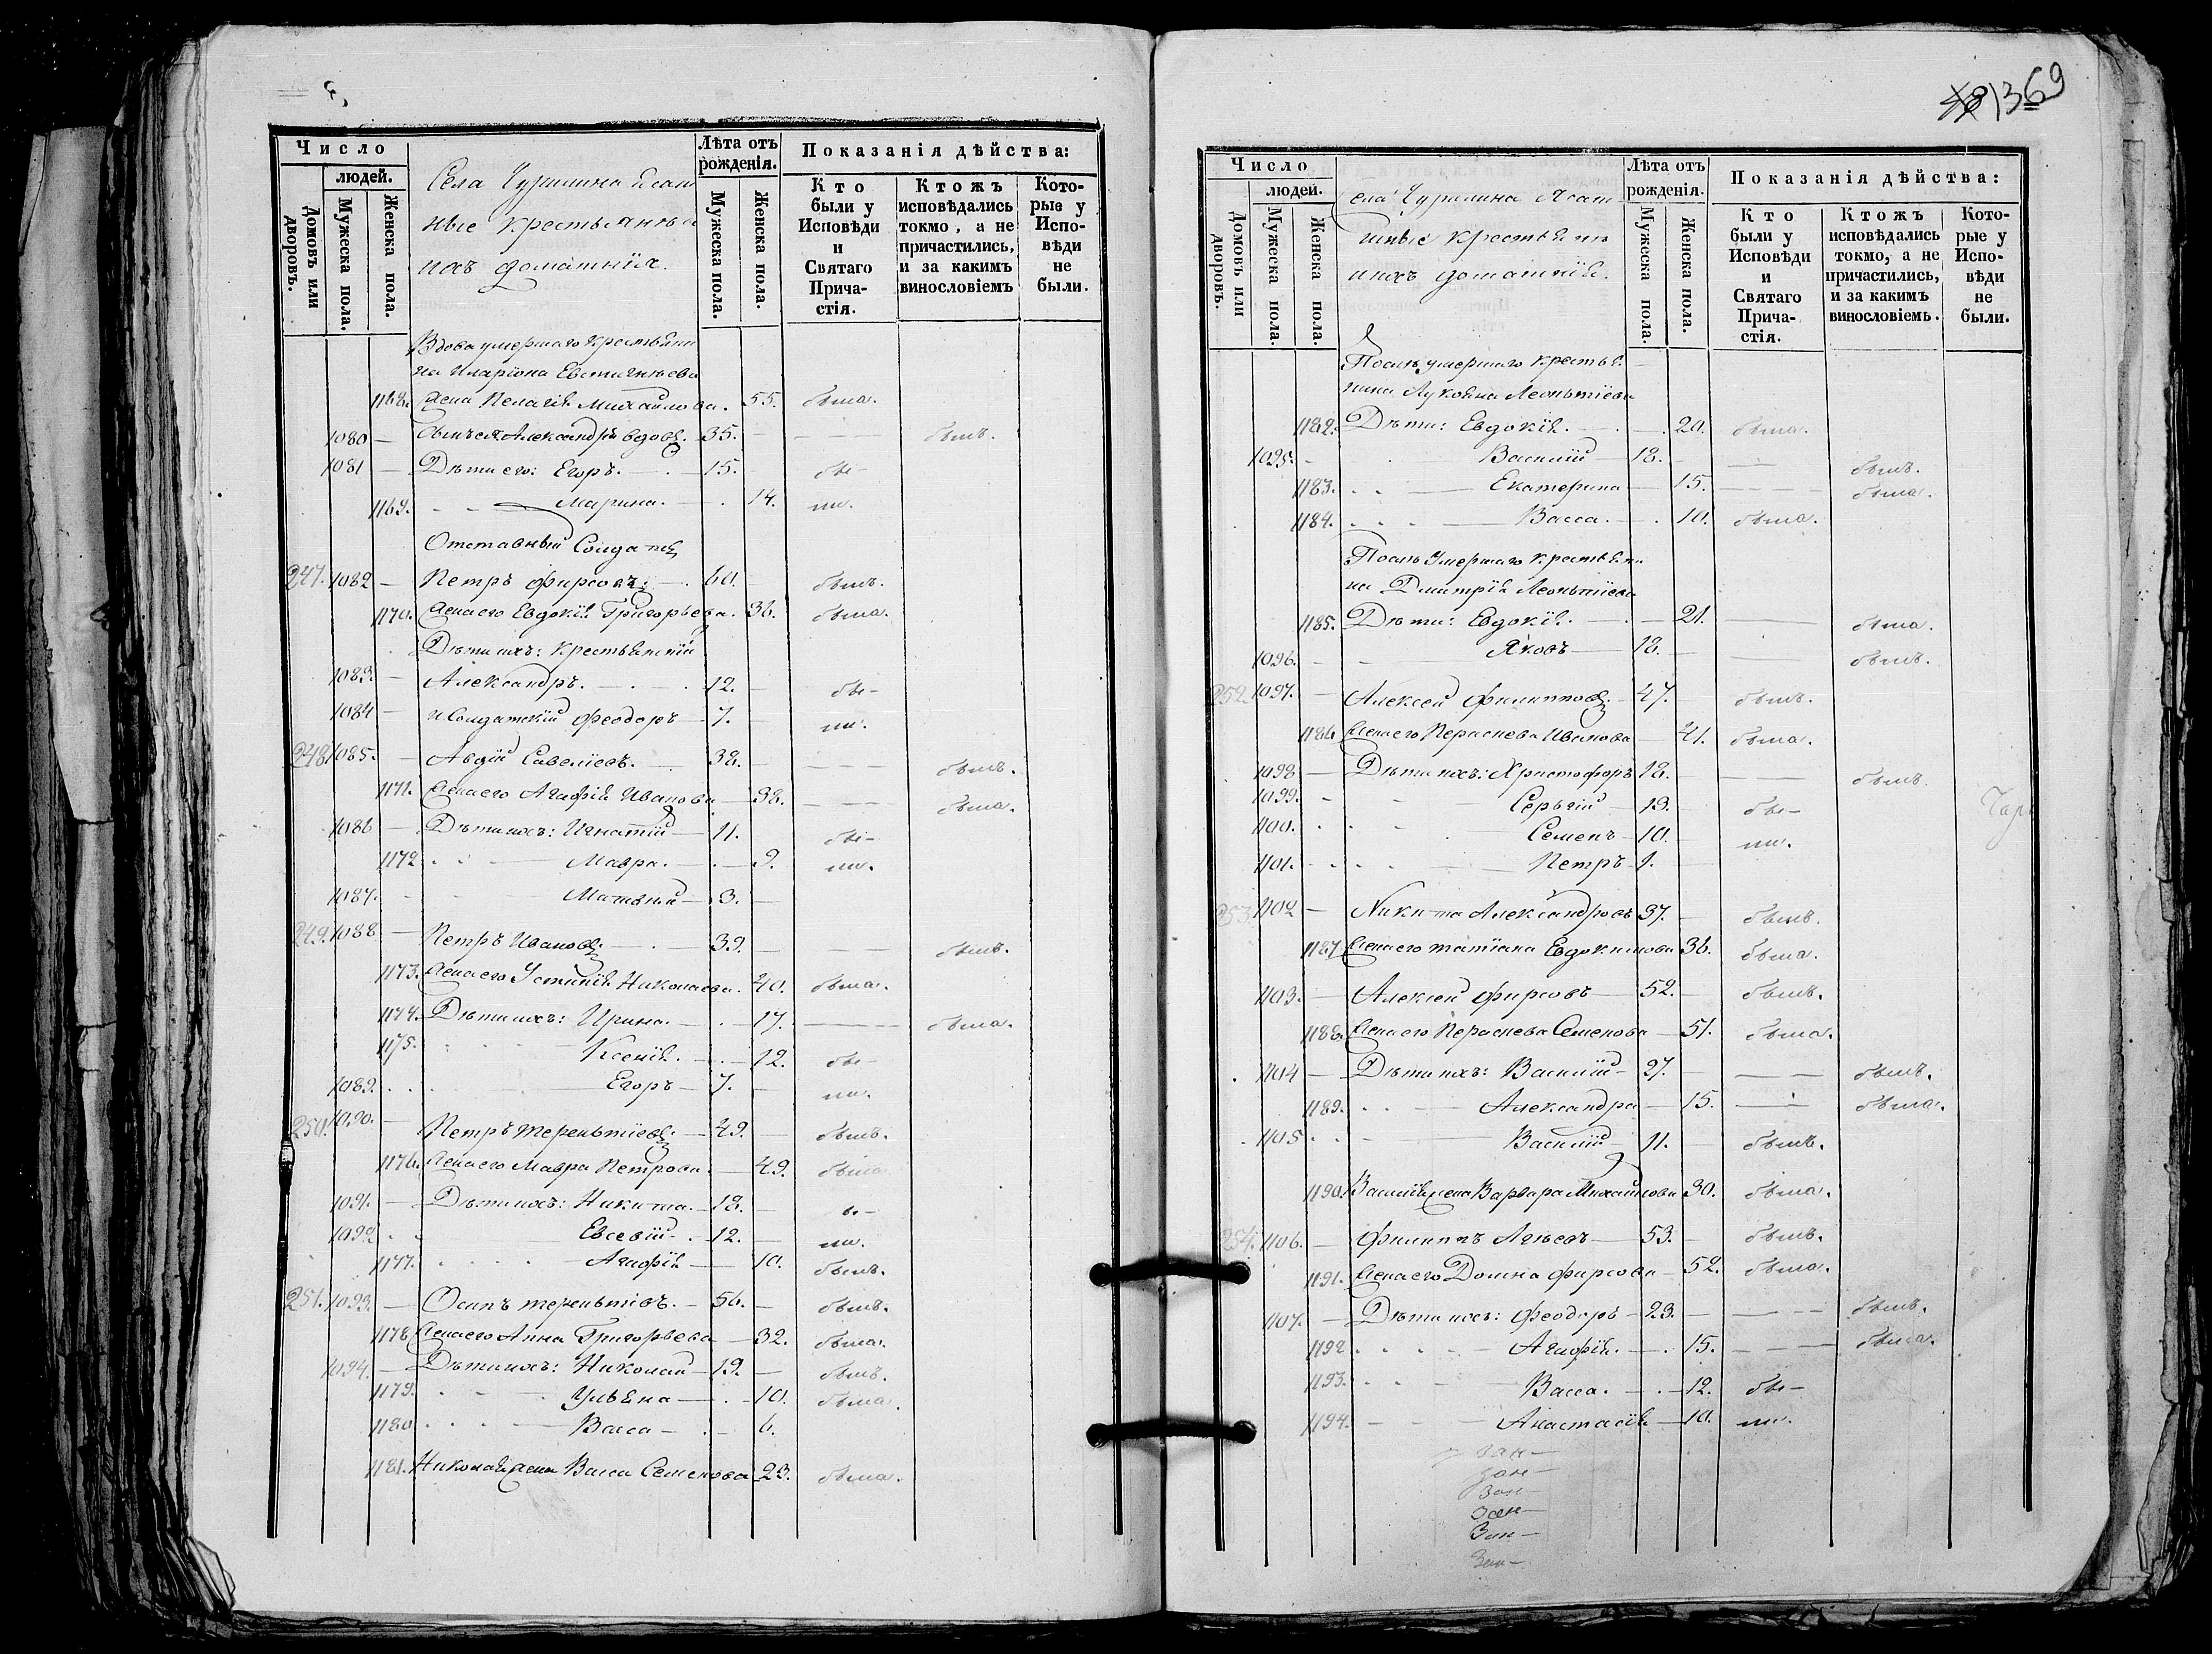 Число
людей.
Домовъ или дворовъ.
Мужеска пола.
Женска пола.
Села Чурилина ясаш
ные крестьяне и
ихъ домашнія.
Лѣта отъ рожденія.
Мужеска пола.
Женска пола.
Показанія дѣйства:
Кто были у Исповѣди и Святаго Прича-стія.
Ктожъ исповѣдались токмо, а не причастились, и за какимъ винословіемъ
Кото-рые у Испо-вѣди не были.
Вдова умершаго крестьяни
на Иларіона Евстигнѣева
1168. жена Пелагія Михайлова. 55. была.
1080 — Сынъ ея Александръ вдовъ. 35. — былъ.
1081 — Дѣти его: Егоръ. — 15. бы-
1169. Марина. — 14. ли.
Отставный Солдатъ
247. 1082 — Петръ Фирсовъ: — 60. былъ.
1170. Жена его Евдокія Григорьева. 36. была.
Дѣти ихъ: крестьянскій
1083. — Александръ. — 12. — бы-
1084 — и Солдатскій Феодоръ — 7. ли.
248. 1085. — Авдій Савеліевъ. 38. — былъ.
1171. Жена его Агафія Иванова — 38. — была.
1086 — Дѣти ихъ: Игнатій — 11. бы-
1172 Мавра. — 9. ли.
1087. Матвѣй — 3. —
249. 1088 — Петръ Ивановъ. — 39. — былъ.
1173. Жена его Устинія Николаева. 40. была.
1174. Дѣти ихъ: Ирина. — 17. — была.
1175. Ксенія. — 12. бы-
1089. Егоръ — 7. — ли.
250. 1090. — Петръ Терентіевъ. — 49. — былъ.
1176. Жена его Мавра Петрова. — 49. была
1091. — Дѣти ихъ: Никита. — 18. — бы-
1092 Евсевій — 12. — ли.
1177. Агафія — 10. былъ.
251. 1093. — Осипъ Терентьевъ. — 56. — былъ.
1178 Жена его Анна Григорьева — 32. была.
1094. — Дѣти ихъ: Николай — 19. — былъ.
1179. Ульяна — 10. была.
1180 Васса — 6.
1181. Николая жена Васса Семенова 23. была.
369
Число
людей.
Домовъ или дворовъ.
Мужеска пола.
Женска пола.
Села Чурилина Ясаш
ные крестьяне
и ихъ домашніе.
Лѣта отъ рожденія.
Мужеска пола.
Женска пола.
Показанія дѣйства:
Кто были у Исповѣди и Святаго Прича-стія.
Ктожъ исповѣдались токмо, а не причастились, и за какимъ винословіемъ.
Кото-рые у Испо-вѣди не были.
Послѣ умершаго крестья
нина Лукояна Леонтіева
1182. Дѣти: Евдокія. — 20. была.
1095. Василій — 18. — былъ.
1183. Екатерина — 15. — была.
1184. Васса. — 10. была.
Послѣ Умершаго крестьяни
на Дмитрія Леонтіева
1185. Дѣти: Евдокія. — 21. — была.
1096. Яковъ — 18. — былъ.
252. 1097. — Алексей Филипповъ. — 47. былъ.
1186 Жена его Парасковья Иванова — 41. была.
1098 — Дѣти ихъ: Христофоръ 18. — былъ.
1099. Сергій — 13. бы-
1100. Семенъ — 10. ли.
1101. Петръ 1.
253. 1102 — Никита Александровъ 37. былъ.
1187 Жена его Татіана Евдокимова 36. была.
1103. — Алексей Фирсовъ — 52. былъ.
1188. Жена его Парасковья Семенова — 51. была.
1104 — Дѣти ихъ: Василій — 27. — былъ.
1189. Александра — 15. — была.
1105 Василій — 11. былъ.
1190. Василія жена Варвара Михайлова 30. была.
254. 1106. — Филиппъ Агѣевъ — 53. — былъ.
1191. Жена его Домна Фирсова — 52. была.
1107. — Дѣти ихъ: Феодоръ — 23. — былъ.
1192 Агафія. — 15. — была.
1193. Васса. — 12. бы-
1194. Анастасія — 10. ли.